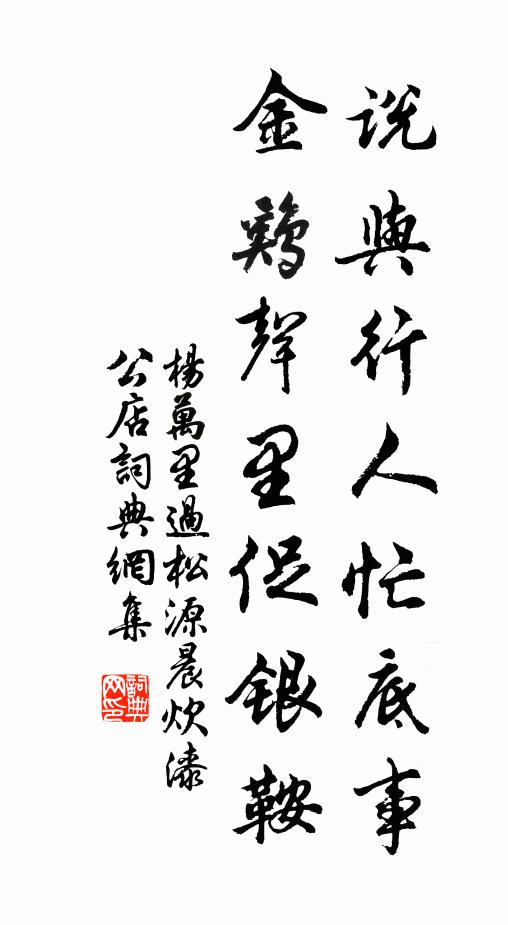 說與行人忙底事
金鷄聲里促銀鞍
楊萬里過松源晨炊漆
公店詞典網集
詞典网印